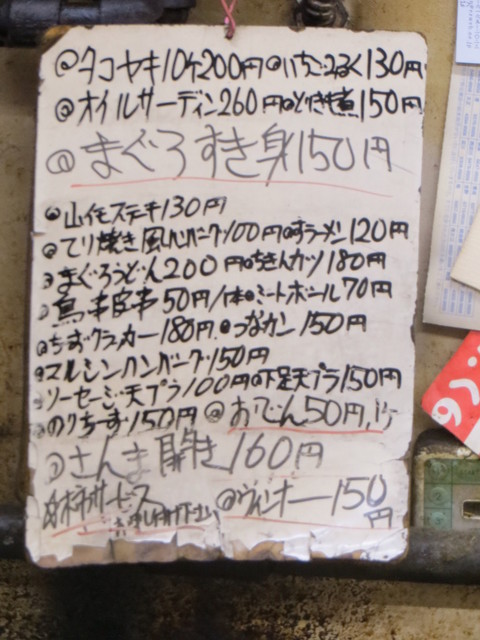 タコヤキ10ケ200円 いちごみるく130円
オイルサーディン260円 とりき煮150円
まぐろすき身150円
山イモステーキ130円
てり焼き風ハンバーグ100円 ラーメン120円
まぐろうどん200円 ちきんカツ180円
鳥串皮串50円/1本 ミートボール70円
ちーずクラッカー180円 つなカン150円
マルシンハンバーグ150円
ソーセージ天プラ100円 下足天プラ150円
のりちーず150円 おでん50円
さんま開き160円
サービス ウィンナー150円